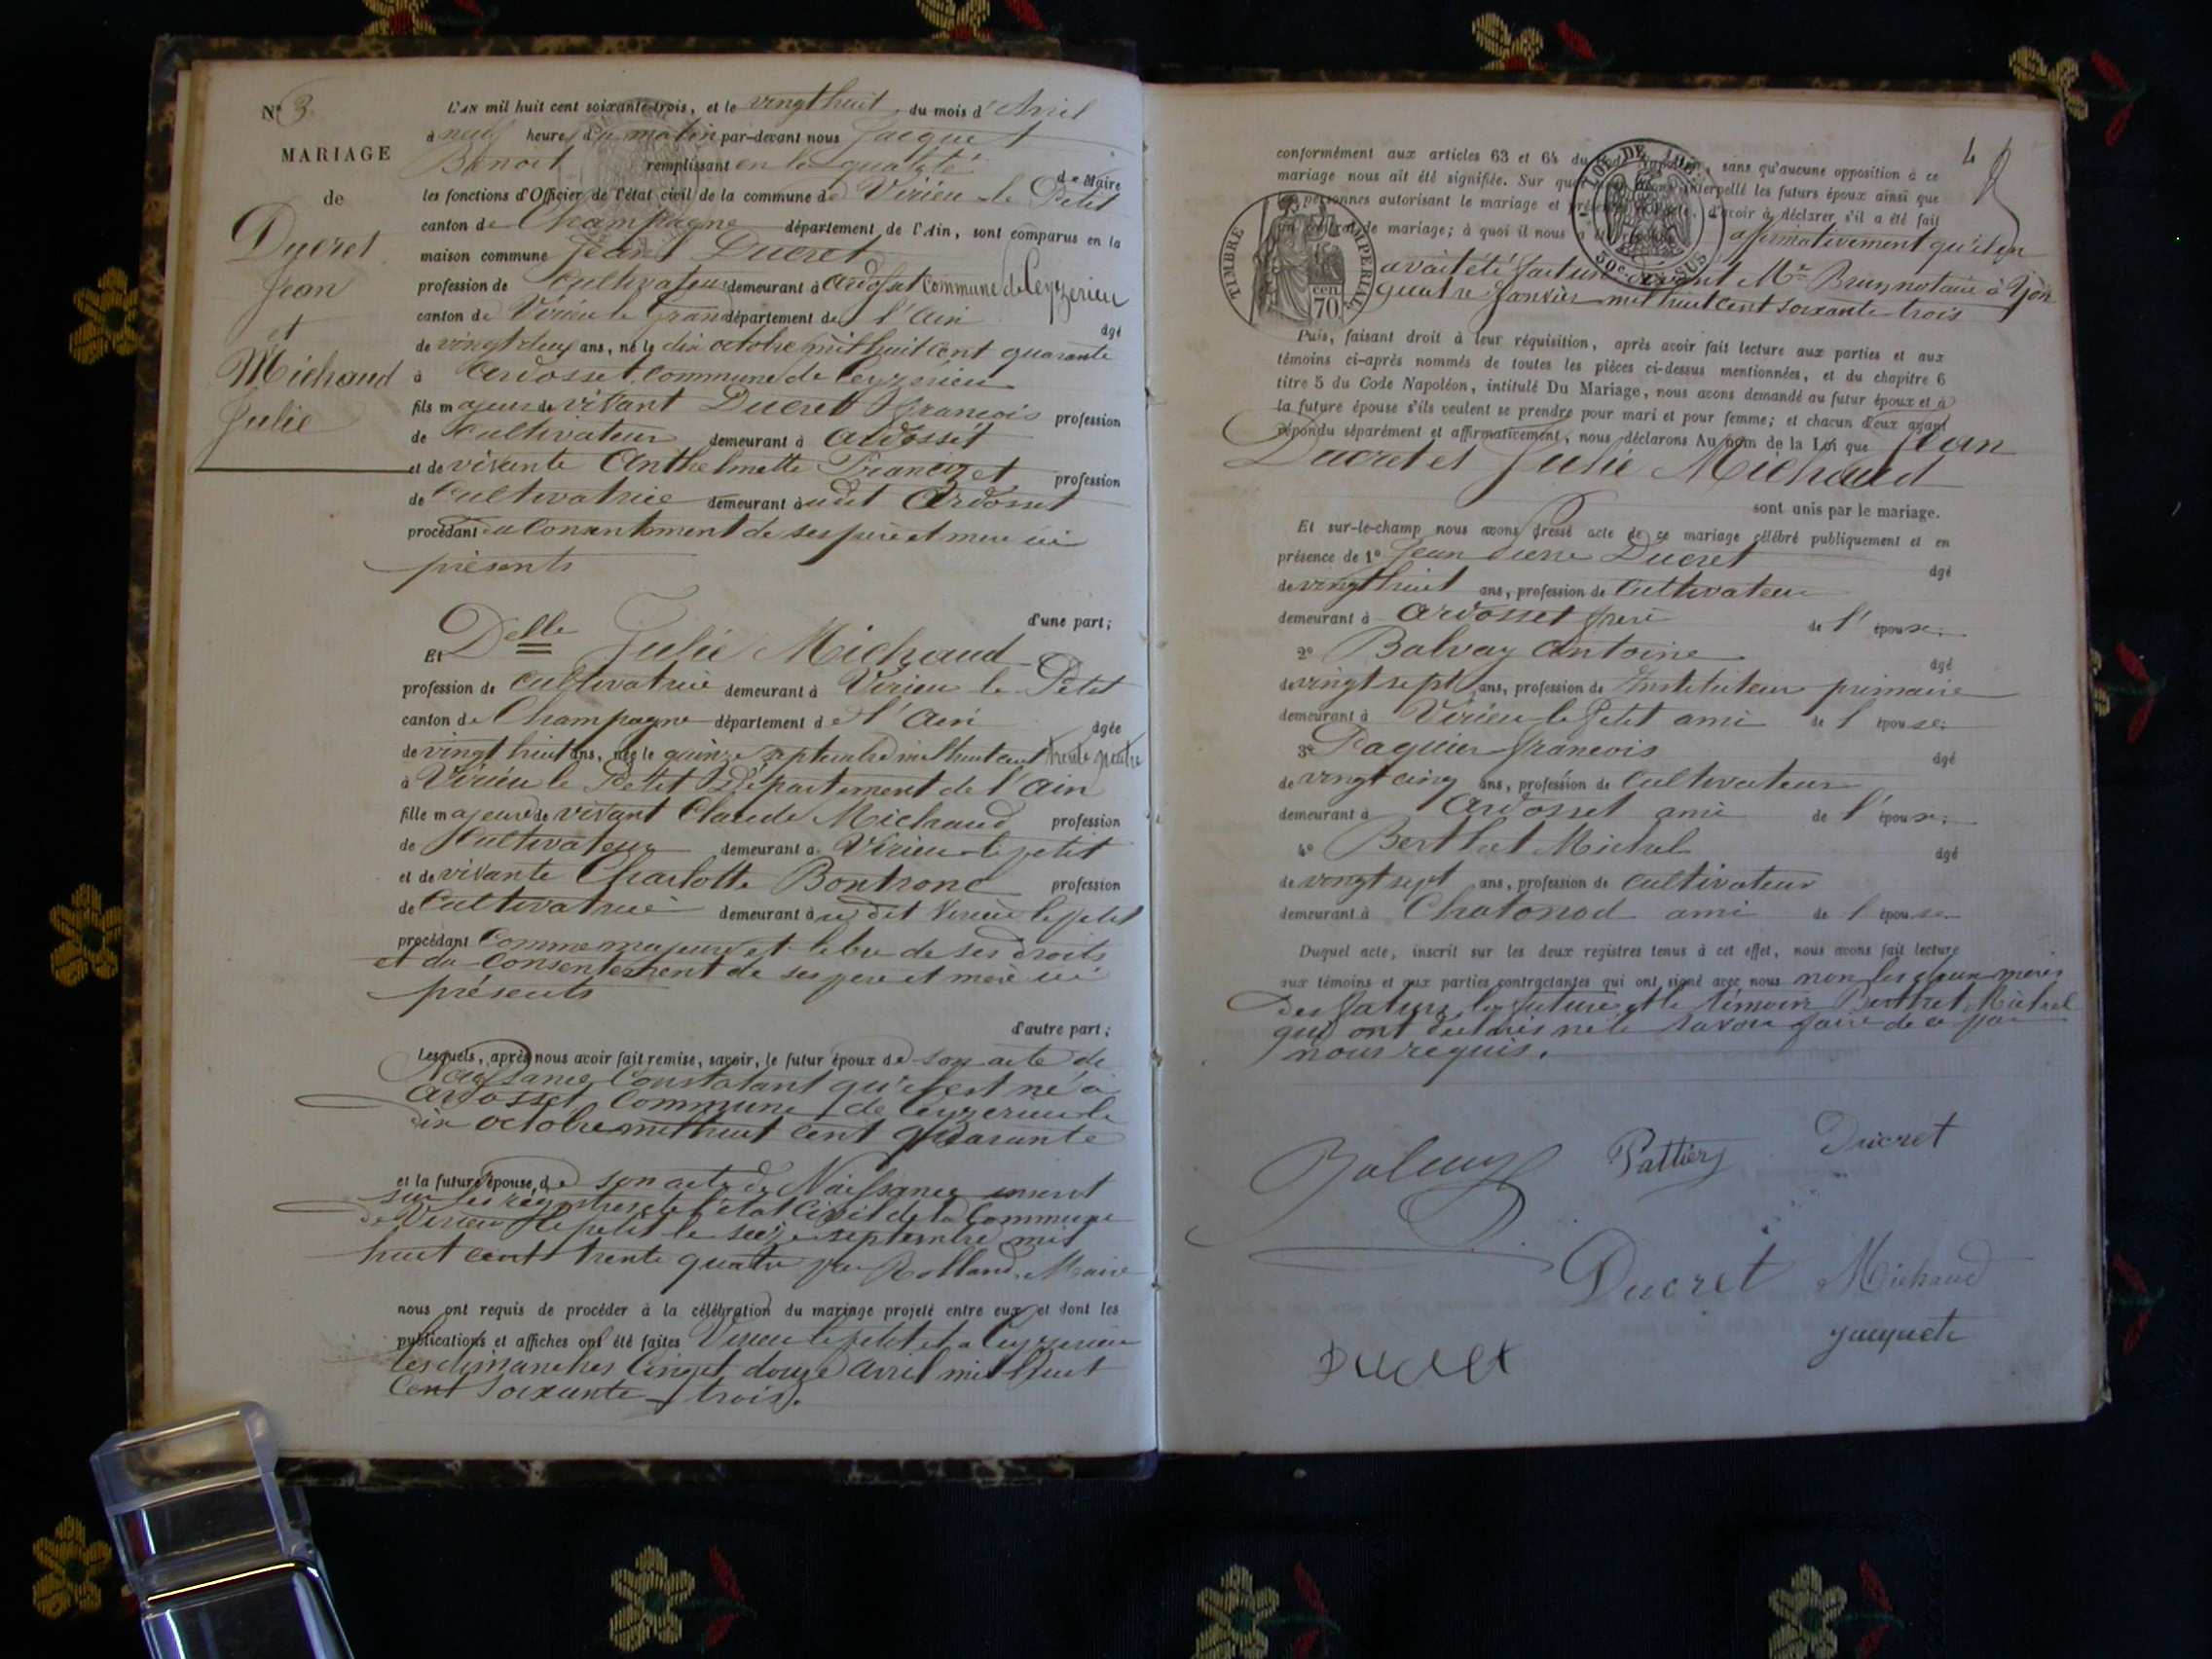 N° 3
MARIAGE
de
Ducret
Jean
et
Michaud
Julie
L'AN mil huit cent soixante-trois, et le vingt huit du mois d'Avril
à neuf heures du matin par-devant nous Jacquet
Benoit remplissant en la qualité
de Maire
les fonctions d'Officier de l'état civil de la commune de Virieu le Petit
canton de Champagne département de l'Ain, sont comparus en la
maison commune Jean Ducret
profession de Cultivateur demeurant à Ardosset Commune de Ceyzerieu
canton de Virieu le Grand département de l'Ain
âgé
de vingt deux ans, né le dix octobre mil huit cent quarante
à Ardosset, Commune de Ceyzérieu
fils majeur de vivant Ducret François profession
de Cultivateur demeurant à Ardosset
et de vivante Anthelmette profession
de Cultivatrice demeurant audit Ardosset
procédant du Consentement de ses père et mère ici
présents
d'une part;
Et Delle Julie Michaud
profession de Cultivatrice demeurant à Virieu le Petit
canton de Champagne département de l'Ain
âgée
de vingt huit ans, née le quinze septembre mil huit cent trente quatre
à Virieu le Petit Département de l'Ain
fille majeure de vivant Claude Michaud profession
de Cultivateur demeurant à Virieu le petit
et de vivante Charlotte Bontronc profession
de Cultivatrice demeurant au dit Virieu le petit
procédant Comme majeure et libre de ses droits
et du Consentement de ses père et mère ici
présents
d'autre part;
Lesquels, après nous avoir fait remise, savoir, le futur époux de son acte de
Naissance Constatant qu'il est né à
Ardosset Commune de Ceyzerieu le
dix octobre mil huit cent quarante
et la future épouse, de son acte de Naissance inscrit
sur les régistres de l'état Civil de la Commune
de Virieu le petit le seize septembre mil
huit cent trente quatre par Rolland, Maire
nous ont requis de procéder à la célébration du mariage projeté entre eux, et dont les
publications et affiches ont été faites Virieu le petit et a Ceyzerieu
les dimanches Cinq et douze avril mil huit
Cent soixante trois.
4
conformément aux articles 63 et 64 du Code Napoléon, sans qu'aucune opposition à ce
mariage nous ait été signifiée. Sur quoi nous avons interpellé les futurs époux ainsi que
les personnes autorisant le mariage et présentes, d'avoir à déclarer s'il a été fait
un contrat de mariage; à quoi il nous a affirmativement qu'il en
avait été fait un devant Me Brun notaire à Yon
quatre Janvier mil huit cent soixante trois
TIMBRE IMPERIAL
cen.
70
50c. EN SUS
Puis, faisant droit à leur réquisition, après avoir fait lecture aux parties et aux
témoins ci-après nommés de toutes les pièces ci-dessus mentionnées, et du chapitre 6
titre 5 du Code Napoléon, intitulé Du Mariage, nous avons demandé au futur époux et à
la future épouse s'ils veulent se prendre pour mari et pour femme; et chacun d'eux ayant
répondu séparément et affirmativement, nous déclarons Au nom de la Loi que Jean
Ducret et Julie Michaud
sont unis par le mariage.
Et sur-le-champ nous avons dressé acte de ce mariage célébré publiquement et en
présence de 1° Jean Pierre Ducret
âgé
de vingt huit ans, profession de Cultivateur
demeurant à Ardosset frère de l'époux;
2° Balvay Antoine
âgé
de vingt sept ans, profession de Instituteur primaire
demeurant à Virieu le Petit ami de l'épouse;
3° Paquier francois
âgé
de vingt cinq ans, profession de Cultivateur
demeurant à Ardosset ami de l'époux;
4° Berthet Michel
âgé
de vingt sept ans, profession de Cultivateur
demeurant à Chatonod ami de l'épouse
Duquel acte, inscrit sur les deux registres tenus à cet effet, nous avons fait lecture
aux témoins et aux parties contractantes qui ont signé avec nous non les deux mères
des futurs, la future et le témoin Berthet Michel
qui ont déclaré ne le savoir faire de ce par
nous requis.
Balvay Ducret
Ducret Michaud
Ducret Jacquet